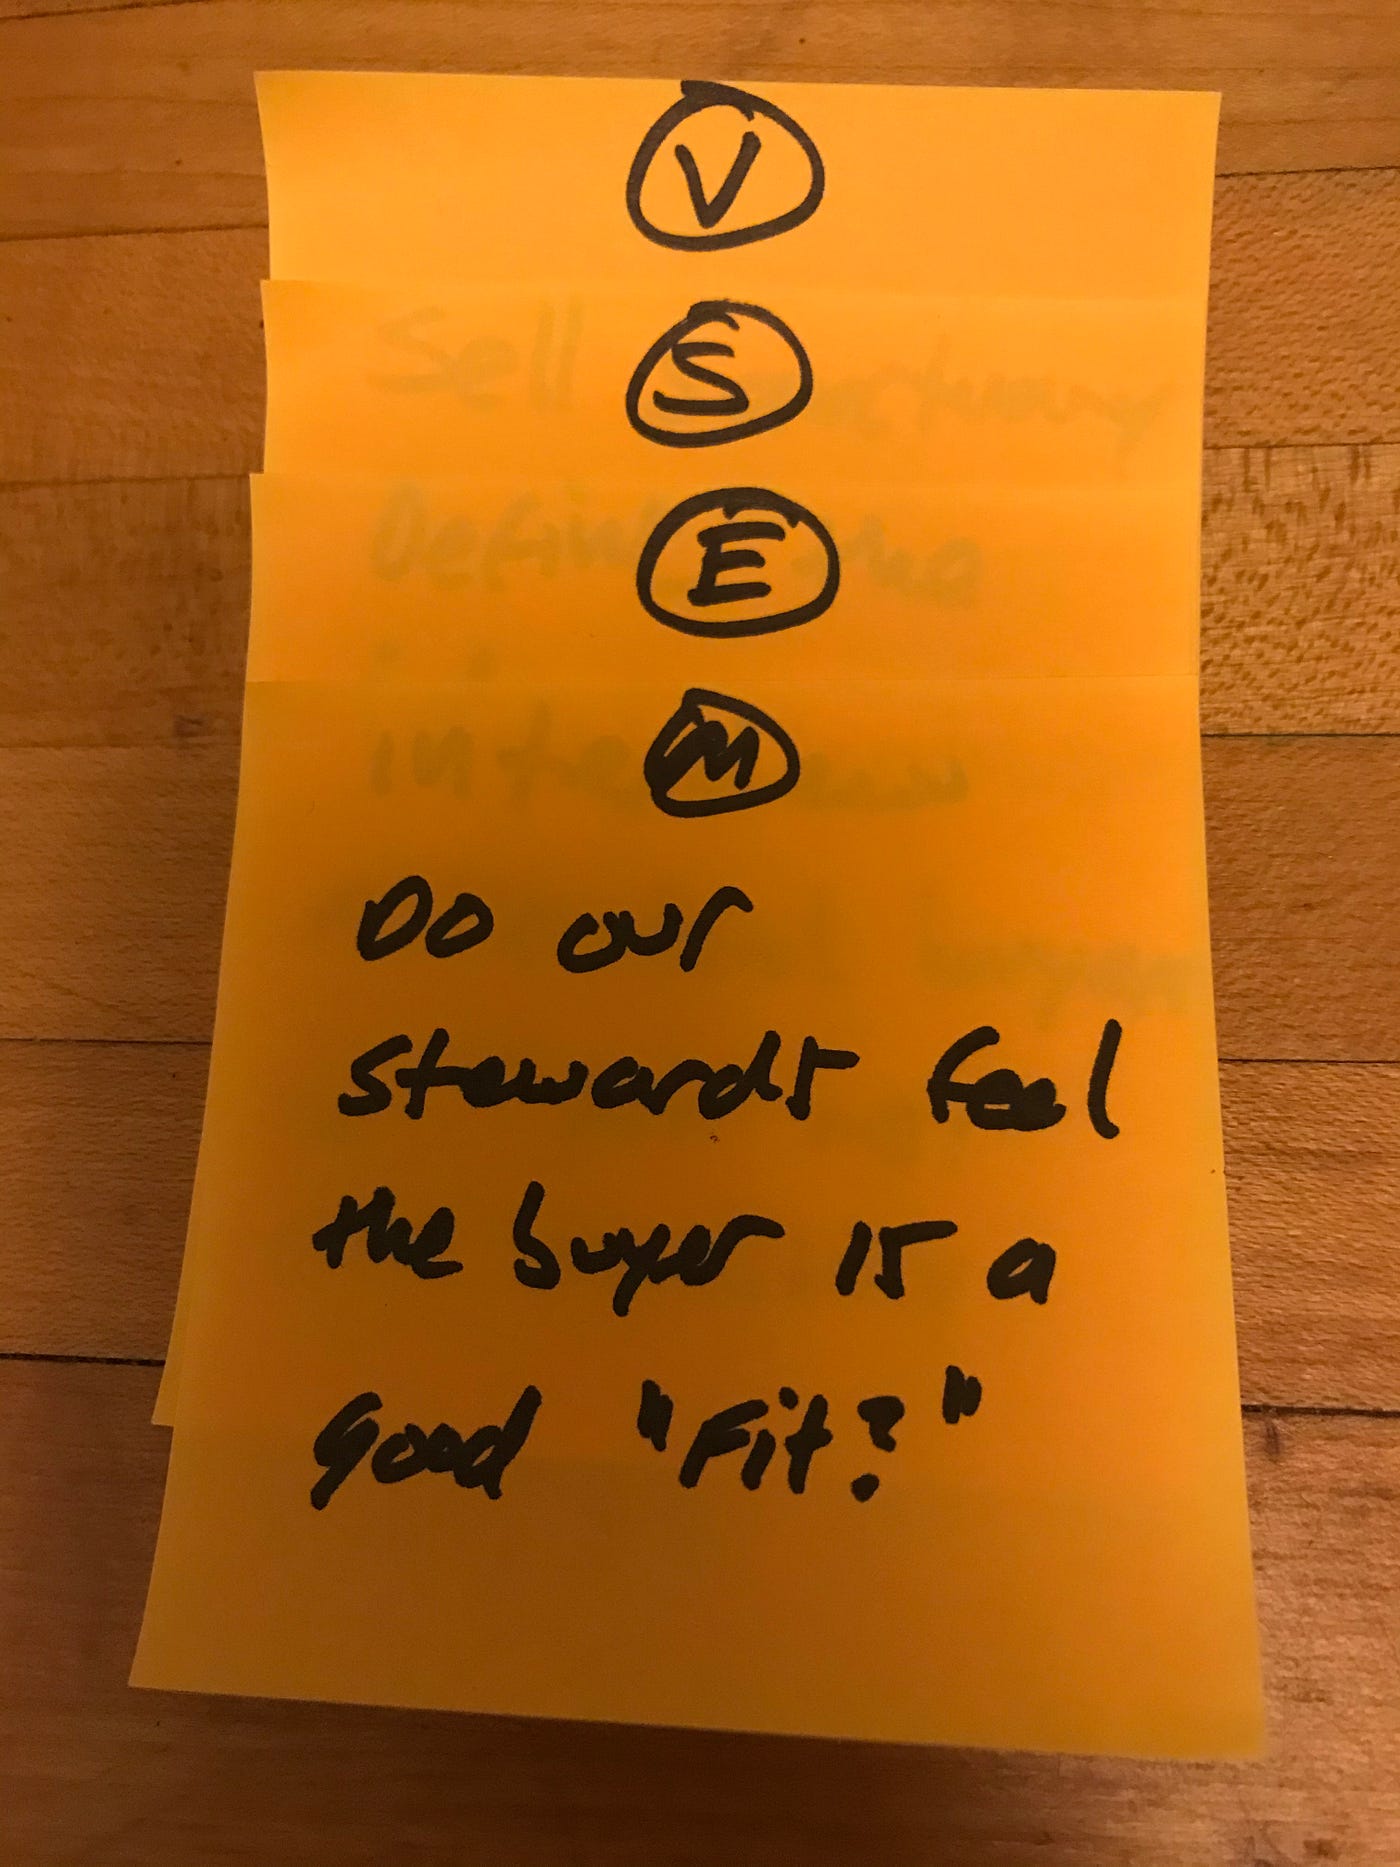 V
S
Sell
E
M
Do our
stewards feel
the buyer is a
good "Fit?"